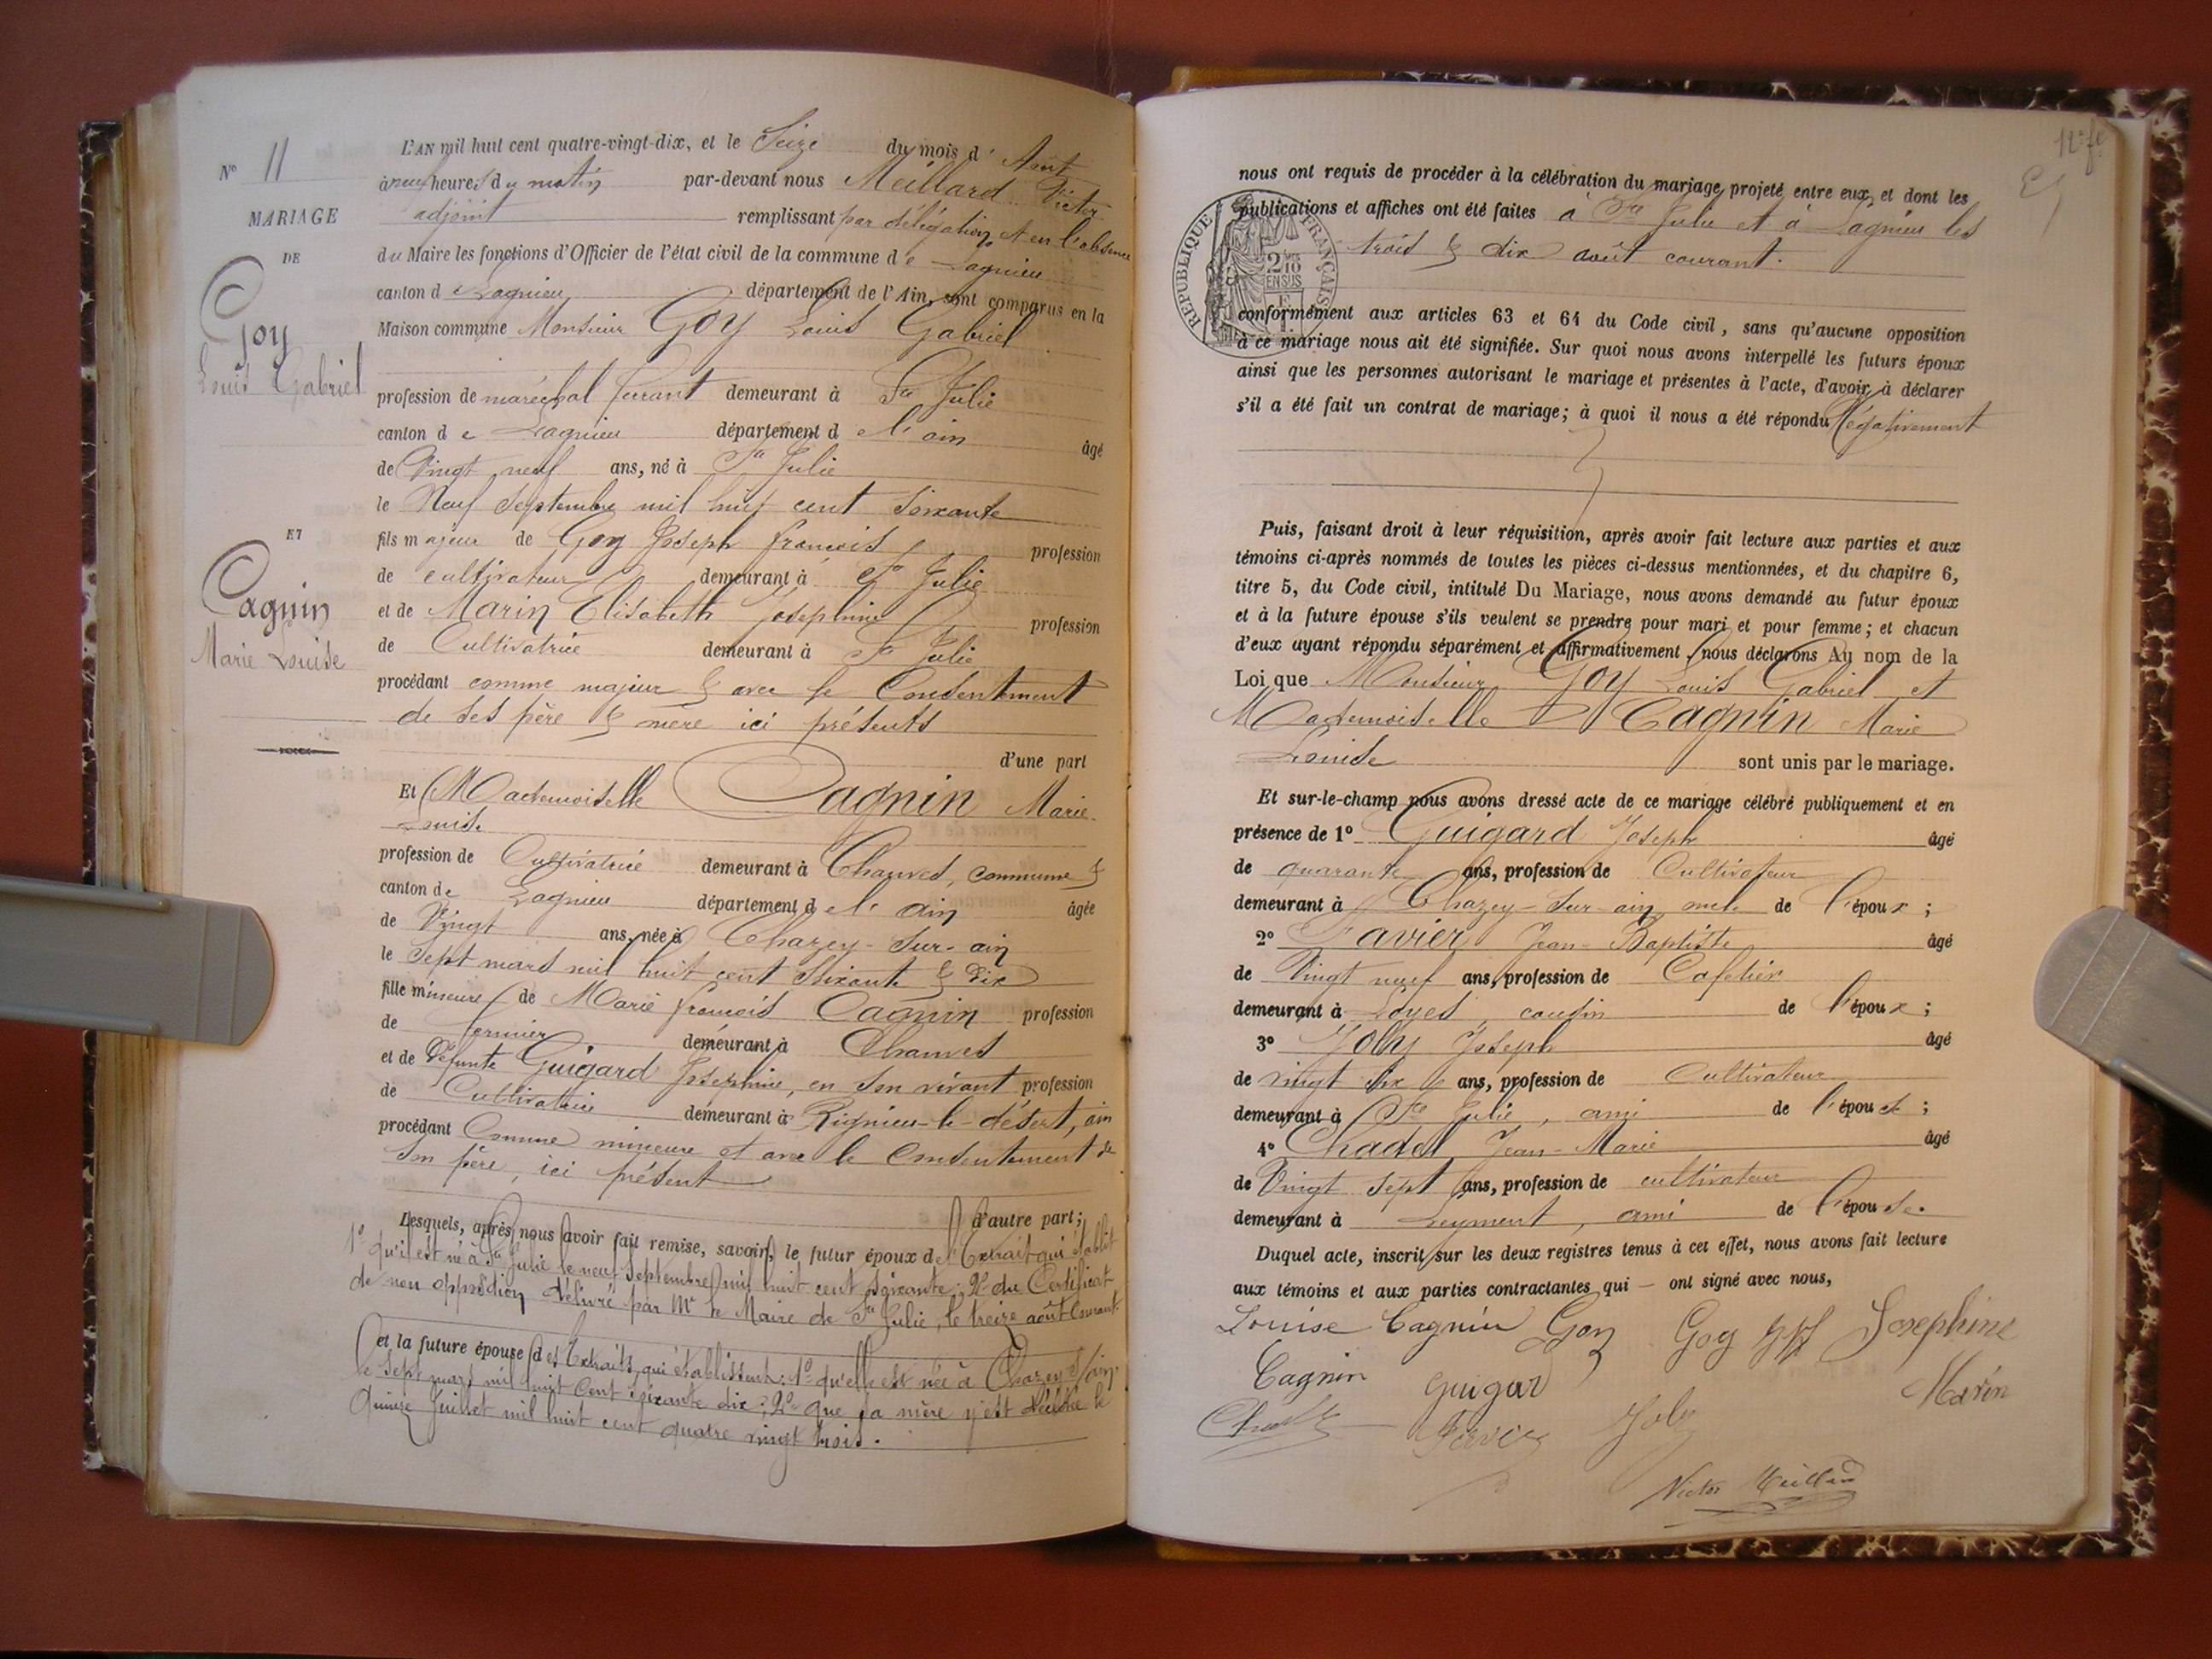 N° 11
MARIAGE
DE
Goy
Louis Gabriel
ET
Cagnin
Marie Louise
L'AN mil huit cent quatre-vingt-dix, et le Seize du mois d'Août
à neuf heures du matin par-devant nous Meillard Victor
adjoint remplissant par délégation et en l'absence
du Maire les fonctions d'Officier de l'état civil de la commune de Lagnieu
canton de Lagnieu département de l'Ain, sont comparus en la
Maison commune Monsieur Goy Louis Gabriel
profession de maréchal ferrant demeurant à Ste Julie
canton de Lagnieu département de l'ain âgé
de Vingt neuf ans, né à Ste Julie
le Neuf Septembre mil huit cent soixante
fils majeur de Goy Joseph françois profession
de cultivateur demeurant à Ste Julie
et de Marin Elisabeth Joséphine profession
de Cultivatrice demeurant à Ste Julie
procédant comme majeur & avec le Consentement
de ses père & mère ici présents
d'une part
Et Mademoiselle Cagnin Marie
Louise
profession de Cultivatrice demeurant à Charves, commune &
canton de Lagnieu département de l'ain âgée
de Vingt ans, née à Chazey-sur-ain
le Sept mars mil huit cent soixante & dix
fille mineure de Marie françois Cagnin profession
de fermier demeurant à Charves
et de Défunte Guigard Joséphine, en son vivant profession
de Cultivatrice demeurant à Rignieu-le-désert, ain
procédant Comme mineure et avec le Consentement de
son père, ici présent
d'autre part;
Lesquels, après nous avoir fait remise, savoir, le futur époux de l'Extrait qui établit
1° qu'il est né à Ste Julie le neuf Septembre mil huit cent soixante; 2° du Certificat
de non opposition délivré par Mr le Maire de Ste Julie, le treize août Courant.
et la future épouse des Extraits qui établissent: 1° qu'elle est née à Chazey s/ain.
le sept mars mil huit Cent soixante dix; 2° que sa mère y est décédée le
Quinze Juillet mil huit cent quatre vingt trois.
nous ont requis de procéder à la célébration du mariage projeté entre eux, et dont les
publications et affiches ont été faites à Ste Julie et à Lagnieu les
trois & dix août courant.
RÉPUBLIQUE FRANÇAISE
2/10 EN SUS
conformément aux articles 63 et 64 du Code civil, sans qu'aucune opposition
à ce mariage nous ait été signifiée. Sur quoi nous avons interpellé les futurs époux
ainsi que les personnes autorisant le mariage et présentes à l'acte, d'avoir à déclarer
s'il a été fait un contrat de mariage; à quoi il nous a été répondu Négativement
Puis, faisant droit à leur réquisition, après avoir fait lecture aux parties et aux
témoins ci-après nommés de toutes les pièces ci-dessus mentionnées, et du chapitre 6,
titre 5, du Code civil, intitulé Du Mariage, nous avons demandé au futur époux
et à la future épouse s'ils veulent se prendre pour mari et pour femme; et chacun
d'eux ayant répondu séparément et affirmativement, nous déclarons Au nom de la
Loi que Monsieur Goy Louis Gabriel et
Mademoiselle Cagnin Marie
Louise sont unis par le mariage.
Et sur-le-champ nous avons dressé acte de ce mariage célébré publiquement et en
présence de 1° Guigard Joseph âgé
de quarante ans, profession de Cultivateur
demeurant à Chazey-sur-ain de l'époux;
2° Favier Jean-Baptiste âgé
de Vingt neuf ans, profession de Cafetier
demeurant à Loyes, cousin de l'époux;
3° Joly Joseph âgé
de vingt six ans, profession de Cultivateur
demeurant à Ste Julie, ami de l'époux;
4° Chadel Jean-Marie âgé
de Vingt sept ans, profession de cultivateur
demeurant à Leyment, ami de l'épouse.
Duquel acte, inscrit sur les deux registres tenus à cet effet, nous avons fait lecture
aux témoins et aux parties contractantes qui — ont signé avec nous,
Louise Cagnin Goy Goy Jph Josephine
Cagnin Guigard Marin
Favier Joly
Victor Meillard